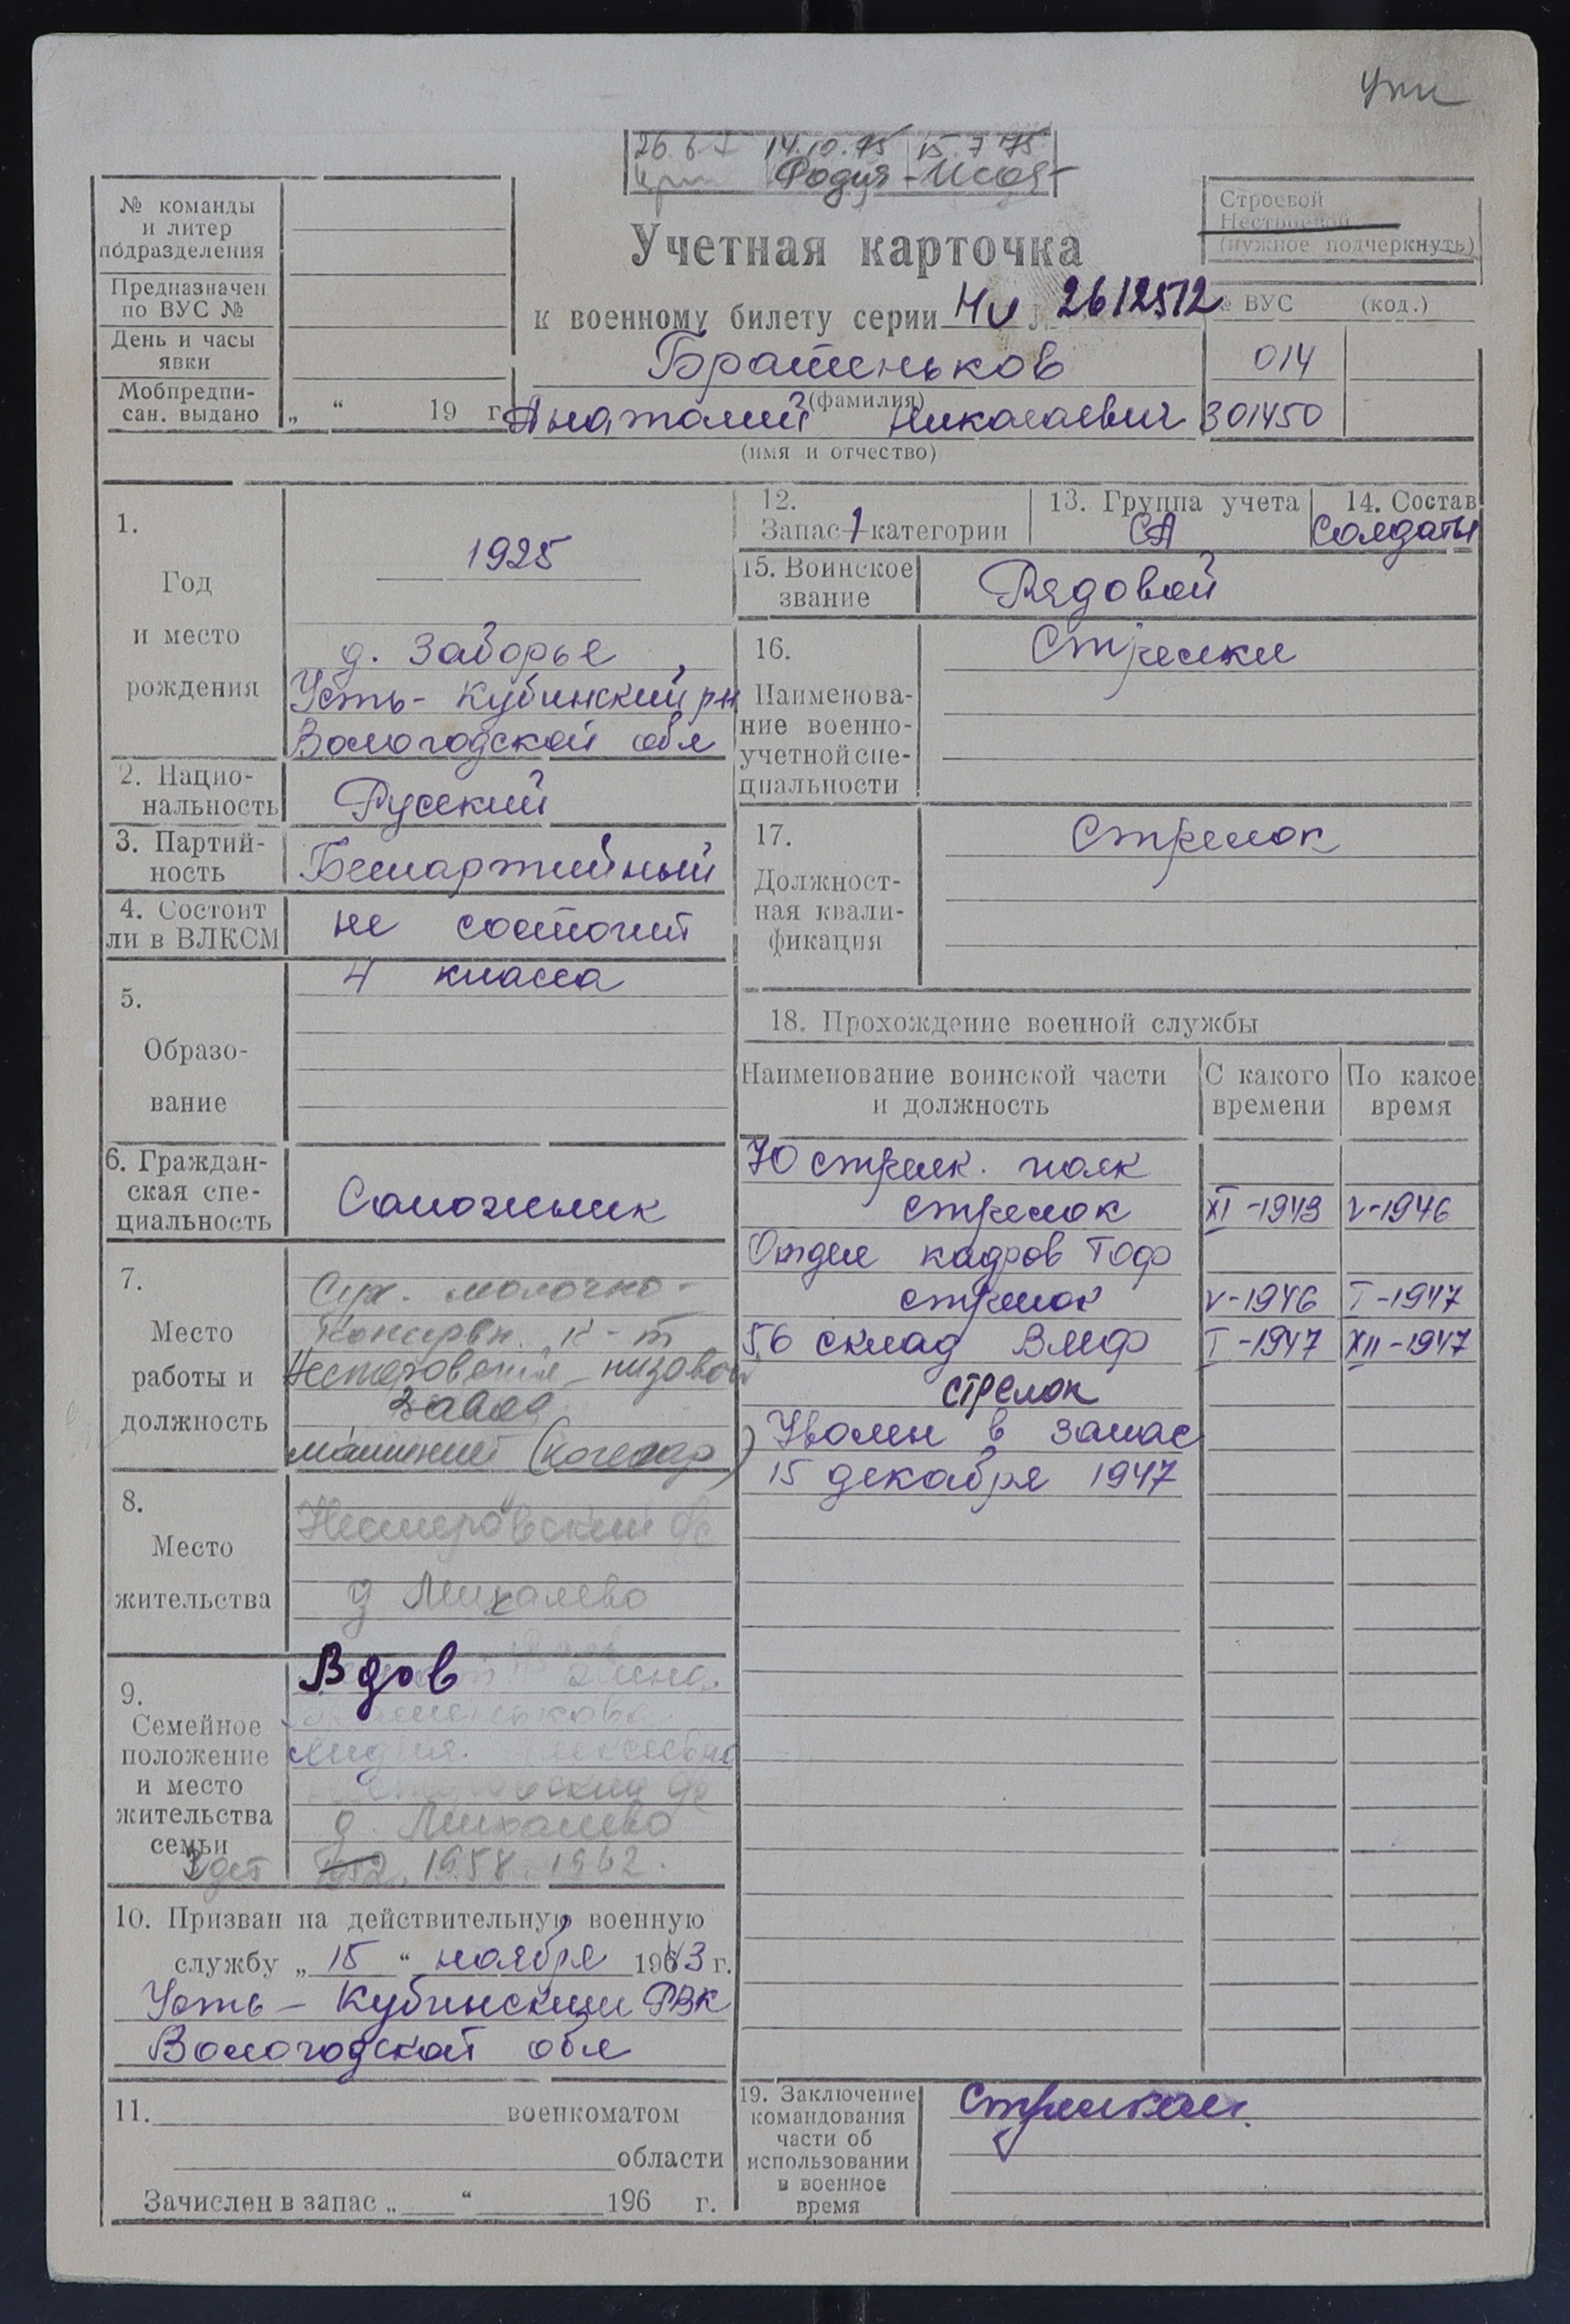 26.6.7 14.10.75 15.7.75
№ команды
и литер
подразделения
Предназначен
по ВУС №
День и часы
явки
Мобпредпи-
сан. выдано „ “ 19 г.
Строевой
Нестроевой
(нужное подчеркнуть)
Учетная карточка
к военному билету серии НИ 2612512
№ ВУС (код.)
Братеньков
014
(фамилия)
Анатолий Николаевич
301450
(имя и отчество)
1.
Год
и место
рождения
1925
д. Заборье
Усть-Кубинский р-н
Вологодской обл
2. Нацио-
нальность
Русский
3. Партий-
ность
Беспартийный
4. Состоит
ли в ВЛКСМ
не состоит
5.
Образо-
вание
4 класса
6. Граждан-
ская спе-
циальность
Сапожник
7.
Место
работы и
должность
Сух. молочно-
консервн. к-т
Нестеровский низовой
завод
машинист (кочегар)
8.
Место
жительства
Нестеровский с/с
д Михалево
9.
Семейное
положение
и место
жительства
семьи
Вдов
Лидия
д. Михалево
3 дет 1952, 1958, 1962.
10. Призван на действительную военную
службу „ 15 “ ноября 1943 г.
Усть-Кубинским РВК
Вологодской обл
11. военкоматом
области
Зачислен в запас „ “ 196 г.
12.
Запас 1 категории
13. Группа учета
СА
14. Состав
Солдаты
15. Воинское
звание
Рядовой
16.
Наименова-
ние военно-
учетной спе-
циальности
Стрелки
17.
Должност-
ная квали-
фикация
Стрелок
18. Прохождение военной службы
Наименование воинской части
и должность
С какого
времени
По какое
время
70 стрелк. полк
стрелок XI-1943 V-1946
Отдел кадров ТОФ
стрелок V-1946 I-1947
56 склад ВМФ I-1947 XII-1947
стрелок
Уволен в запас
15 декабря 1947
19. Заключение
командования
части об
использовании
в военное
время
Стрелком.